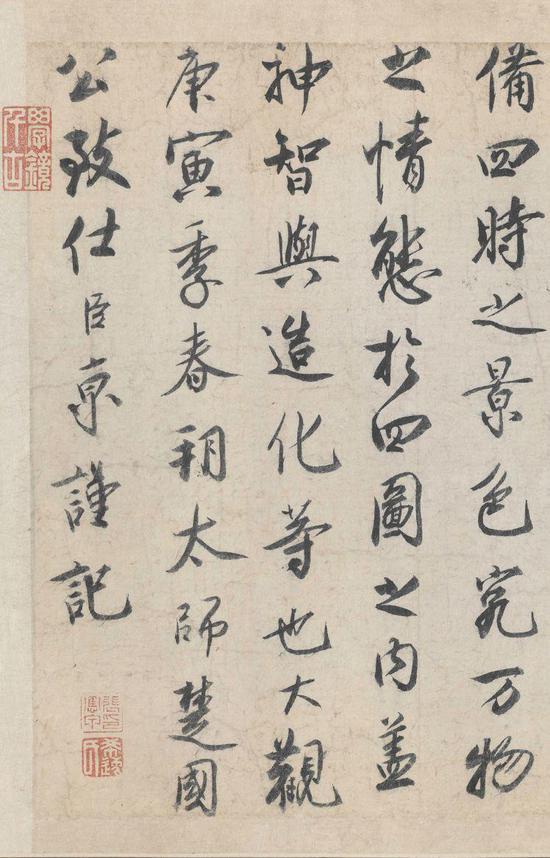 備四時之景色究万物
之情態於四圖之内盖
神智與造化等也大觀
庚寅季春朔太師楚國
公致仕臣京謹記